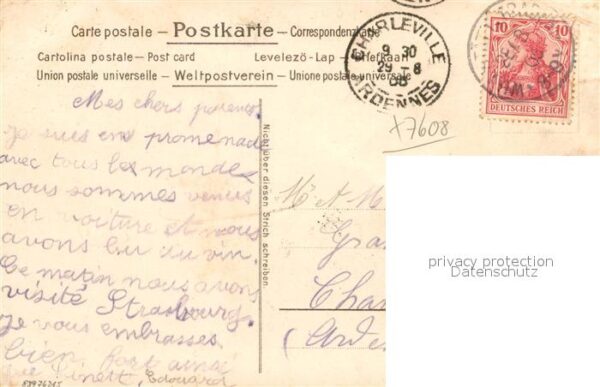 Carte postale — Postkarte — Correspondenzkarte
Cartolina postale — Post card Levelező-Lap — Briefkaart
Union postale universelle — Weltpostverein — Unione postale universale
CHARLEVILLE
9 30
29 - 8
08
ARDENNES
10 10
DEUTSCHES REICH
X7608
Mes chers parents
Je suis en promenade
avec tous les mondes
nous sommes venus
en voiture et nous
avons bu du vin.
Ce matin nous avons
visité Strasbourg.
Je vous embrasses
bien fort ainsi
que Ninette, Edouard
Nicht über diesen Strich schreiben.
Mr & M
Gra
Cha
(Arde
privacy protection
Datenschutz